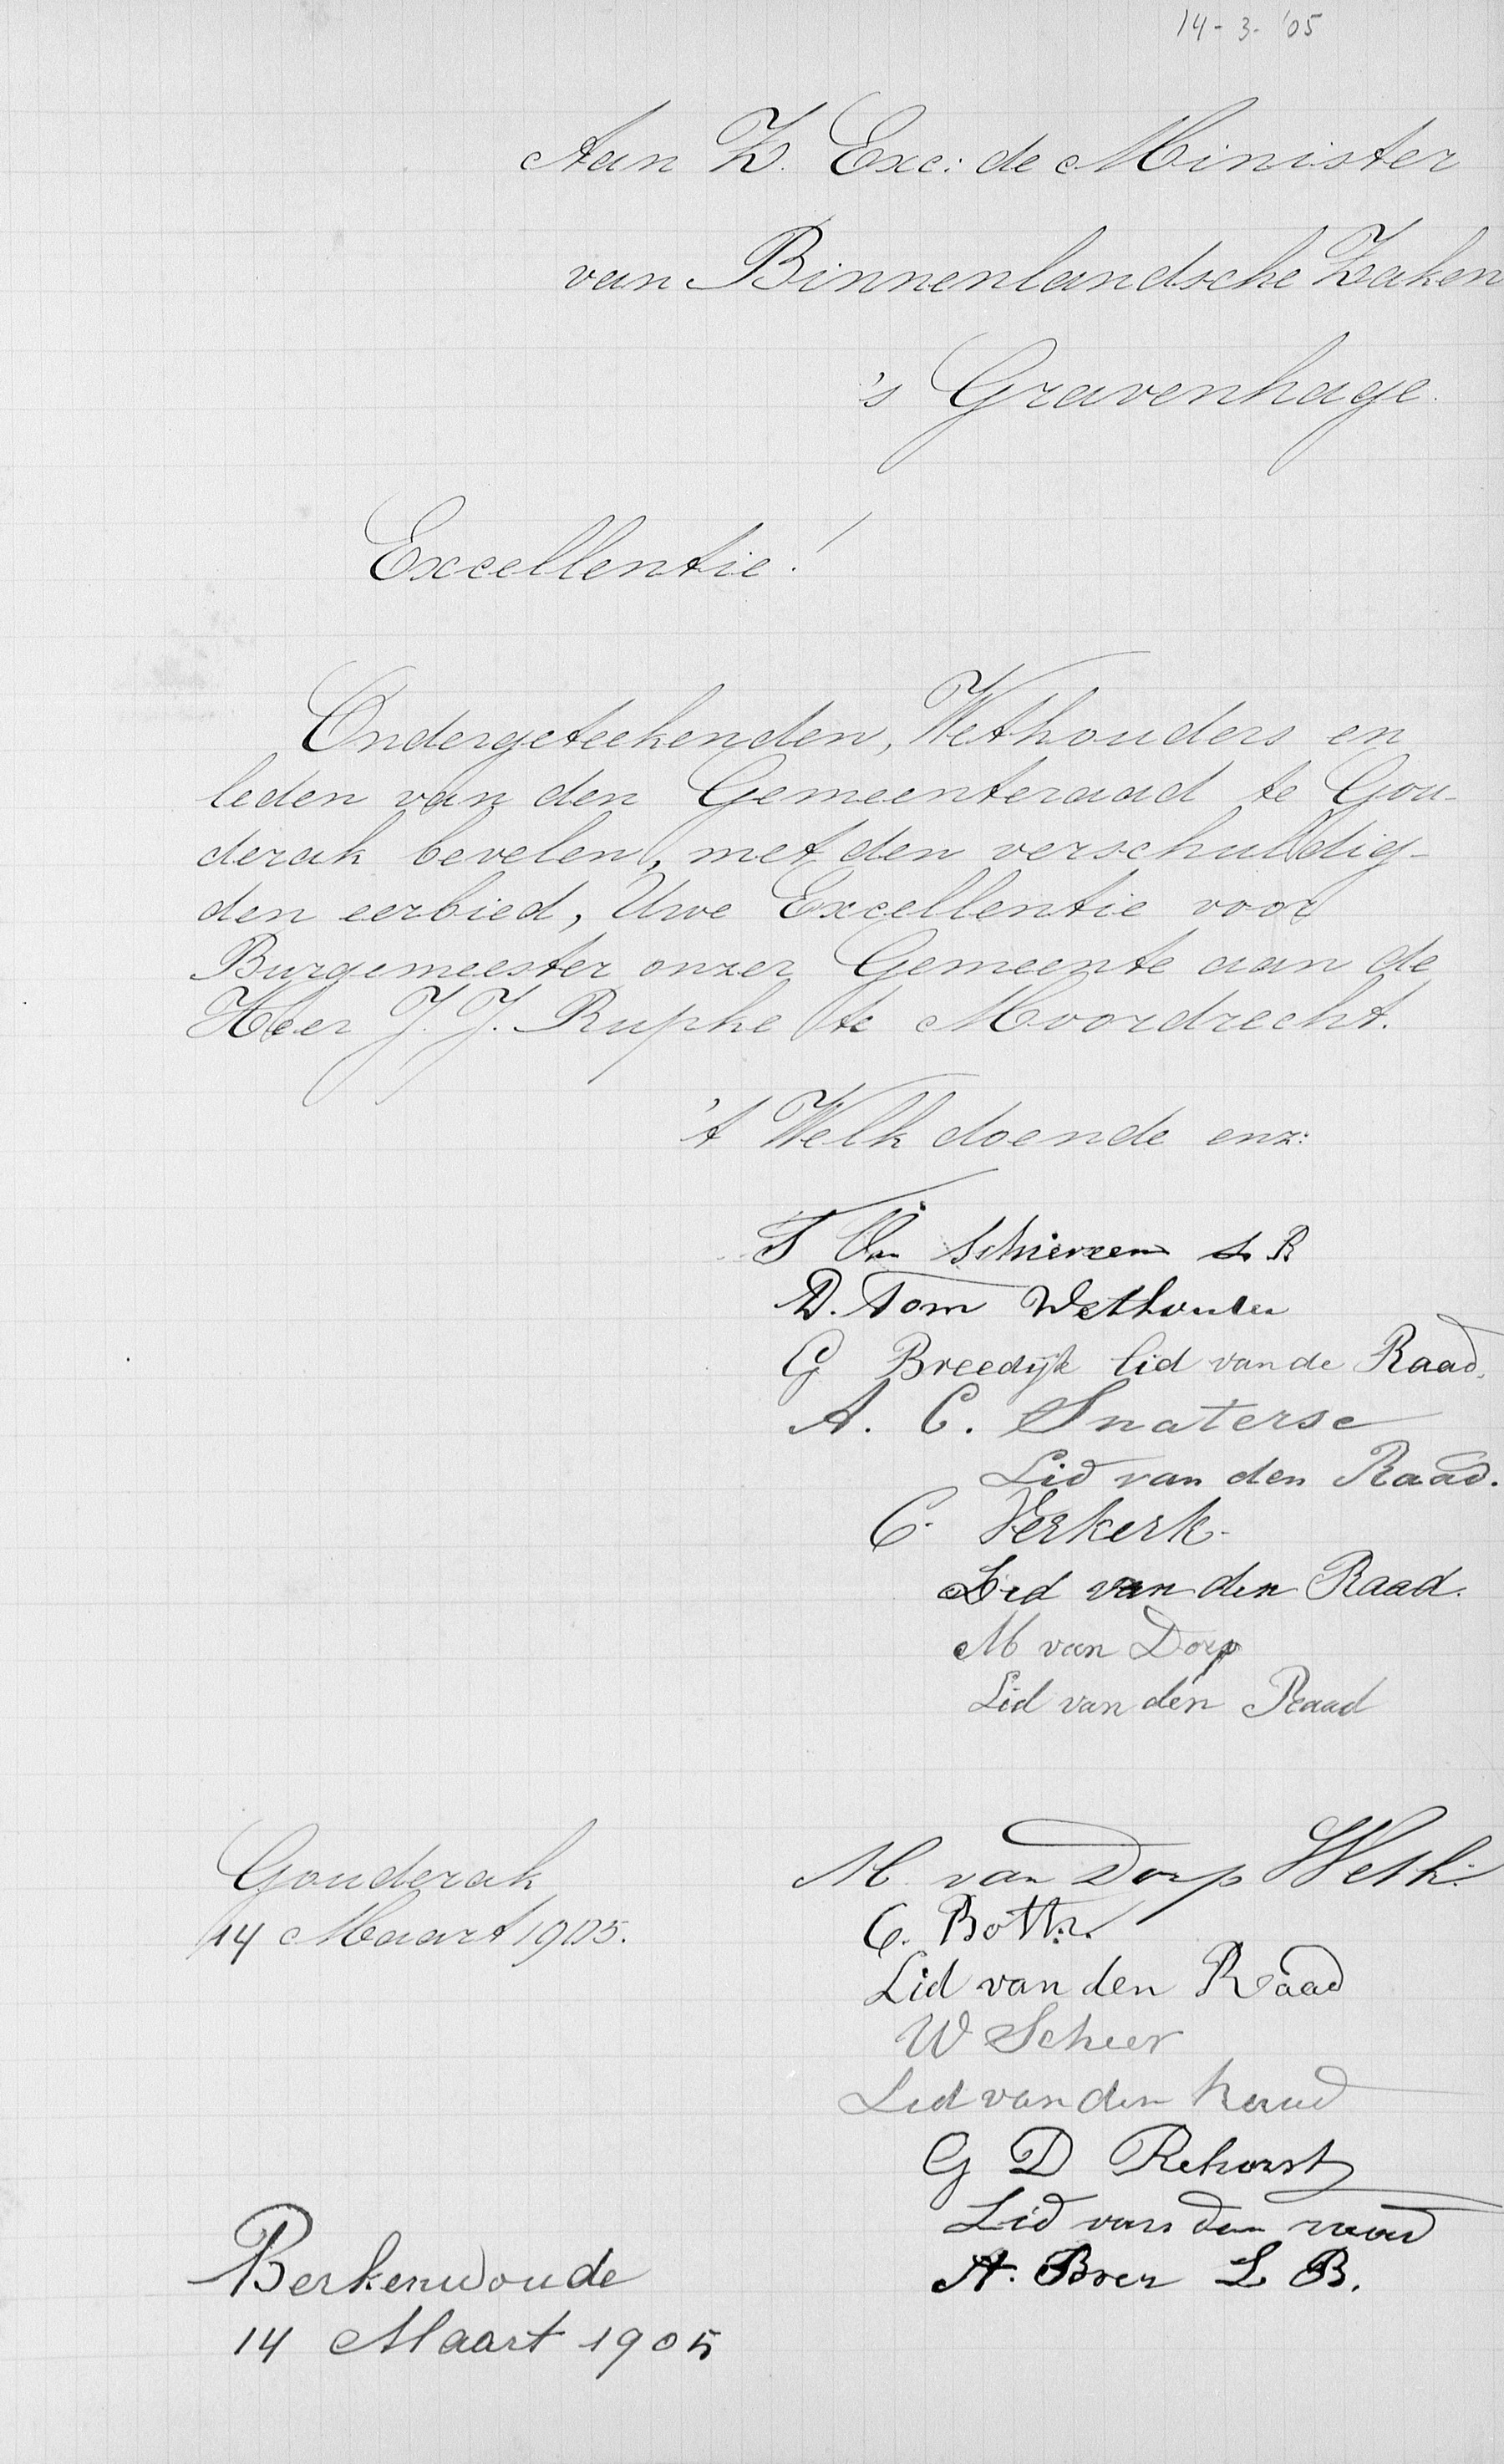 14-3-'05
Aan Z. Exc: de Minister
van Binnenlandsche Zaken
's Gravenhage.
Excellentie!
Ondergeteekenden, Wethouders en
leden van den Gemeenteraad te Gou-
derak bevelen, met den verschuldig-
den eerbied, Uwe Excellentie voor
Burgemeester onzer Gemeente aan de
Heer J. J. Rupke te Moordrecht.
't Welk doende enz:
T Van Schieveen
D. Tom Wethouder
G Breedijk lid van de Raad.
A. C. Snaterse
Lid van den Raad.
C. Verkerk.
Lid van den Raad.
M van Dorp
Lid van den Raad
M. van Dorp Weth.
Gouderak
14 Maart 1905.
C. Both.
Lid van den Raad
W Scheer
Lid van den Raad
G D Rehorst
Lid van den raad
A. Boer L B.
Berkenwoude
14 Maart 1905